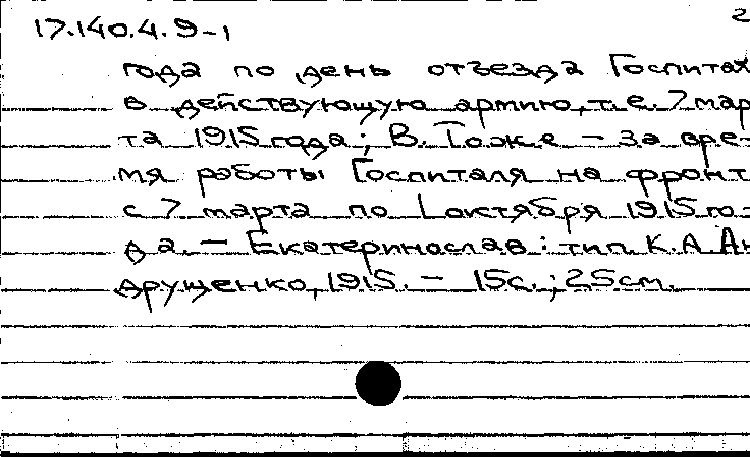 17.140.4.9-1
2
года по день отъезда Госпиталя
в действующую армию, т.е. 7 мар
та 1915 года; В. Тоже - за вре-
мя работы Госпиталя на фронт
с 7 марта по 1 октября 1915 го-
да. - Екатеринослав: тип. К.А. Ан
друщенко, 1915. - 15с.; 25см.